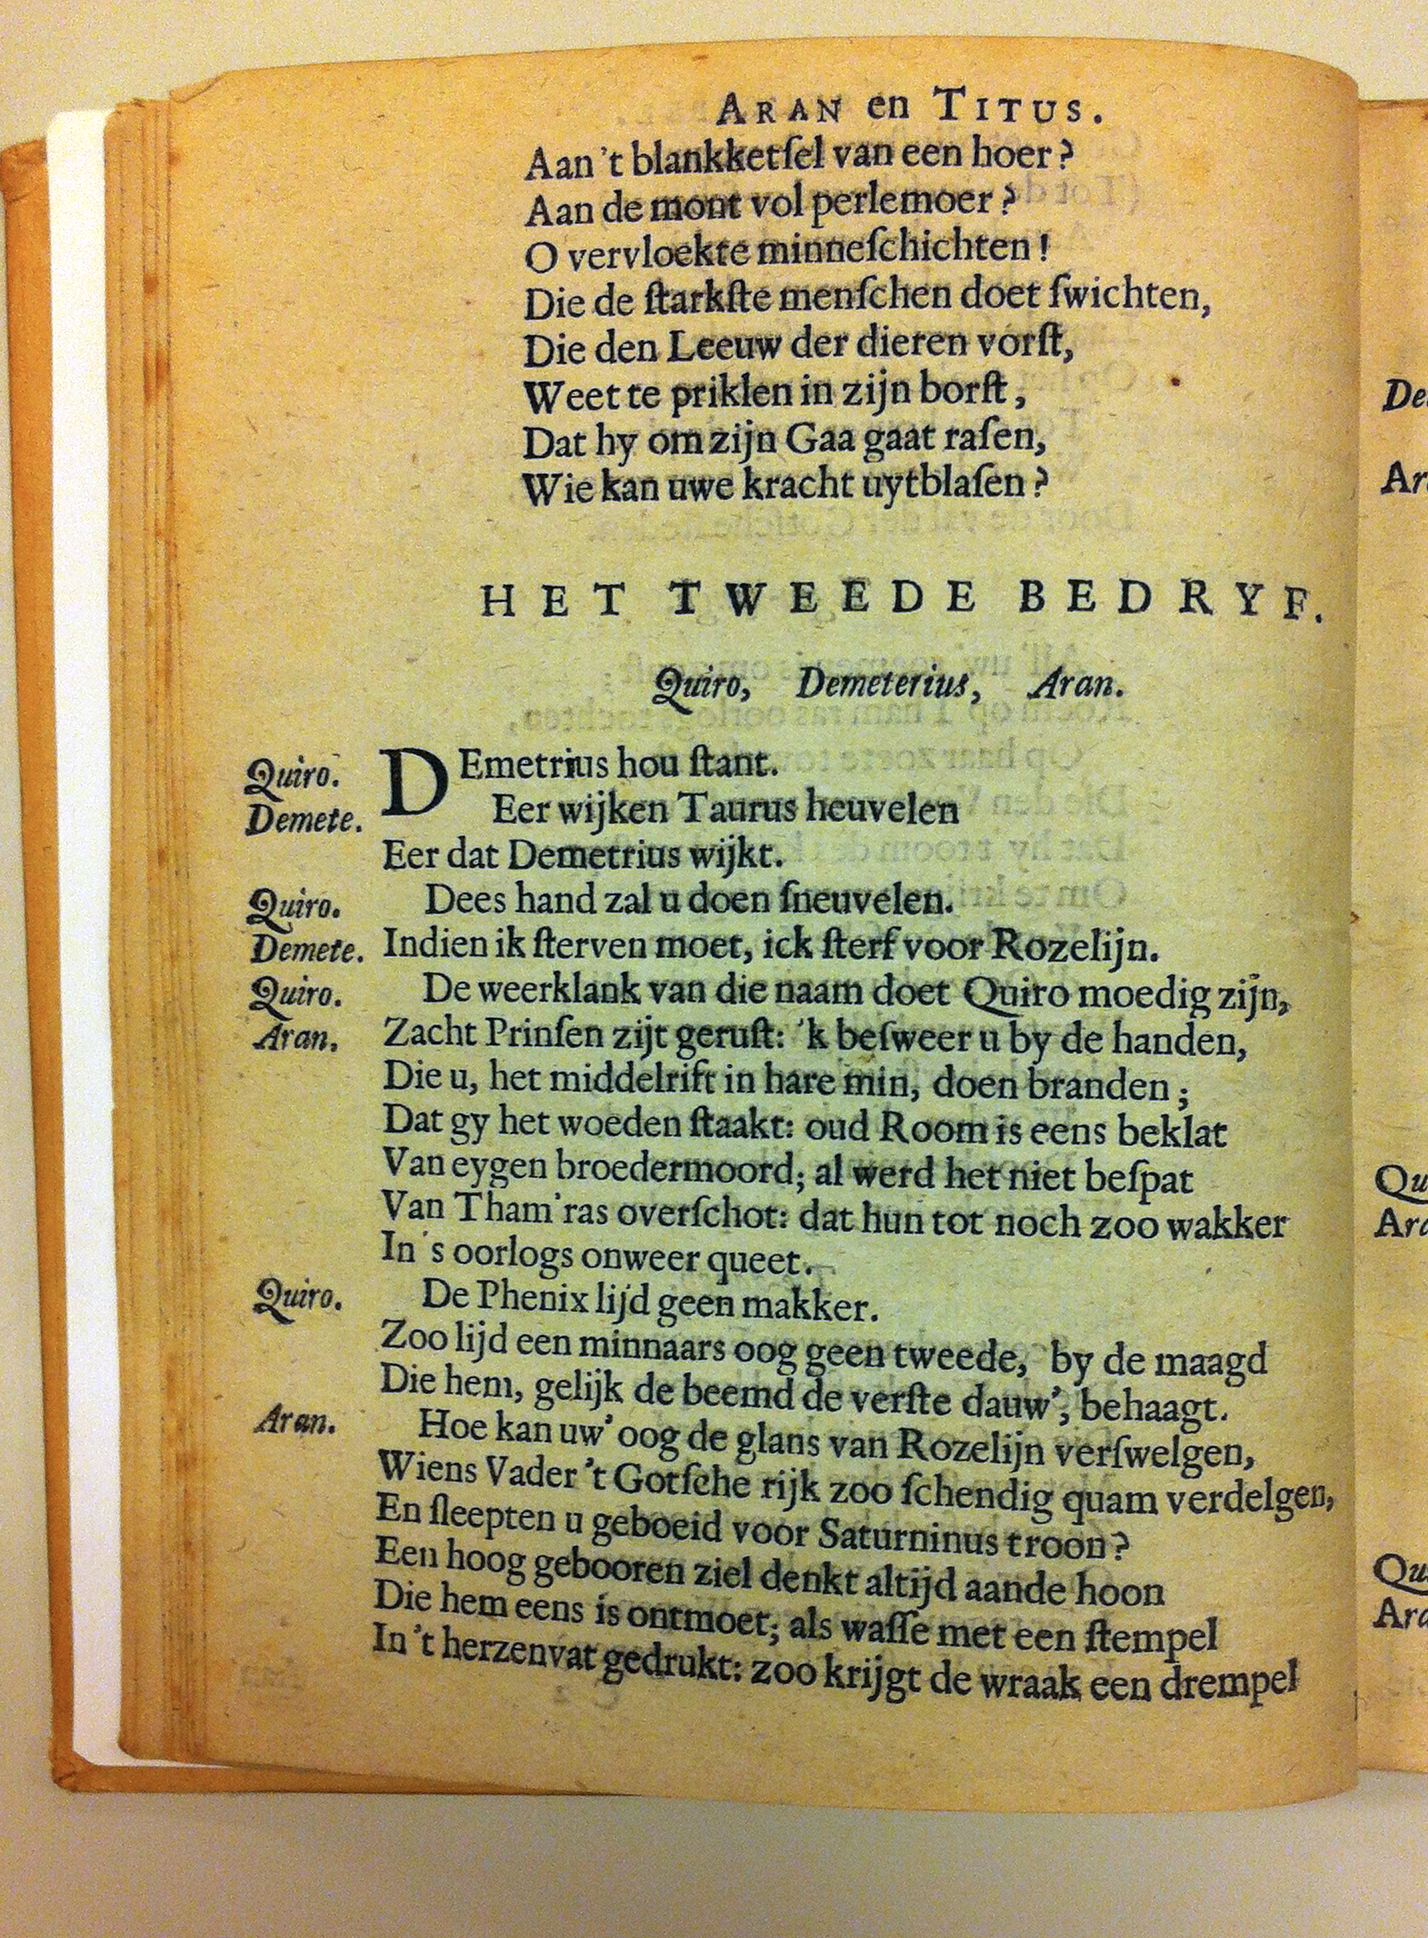 ARAN en TITUS.
Aan 't blankketſel van een hoer?
Aan de mont vol perlemoer?
O vervloekte minneſchichten!
Die de ſtarkſte menſchen doet ſwichten,
Die den Leeuw der dieren vorſt,
Weet te priklen in zijn borſt,
Dat hy om zijn Gaa gaat raſen,
Wie kan uwe kracht uytblaſen?
HET TWEEDE BEDRYF.
Quiro, Demeterius, Aran.
Quiro. DEmetrius hou ſtant.
Demete. Eer wijken Taurus heuvelen
Eer dat Demetrius wijkt.
Quiro. Dees hand zal u doen ſneuvelen.
Demete. Indien ik ſterven moet, ick ſterf voor Rozelijn.
Quiro. De weerklank van die naam doet Quiro moedig zijn,
Aran. Zacht Prinſen zijt geruſt: 'k beſweer u by de handen,
Die u, het middelrift in hare min, doen branden;
Dat gy het woeden ſtaakt: oud Room is eens beklat
Van eygen broedermoord; al werd het niet beſpat
Van Tham'ras overſchot: dat hun tot noch zoo wakker
In 's oorlogs onweer queet.
Quiro. De Phenix lijd geen makker.
Zoo lijd een minnaars oog geen tweede, by de maagd
Die hem, gelijk de beemd de verſte dauw', behaagt.
Aran. Hoe kan uw' oog de glans van Rozelijn verſwelgen,
Wiens Vader 't Gotſche rijk zoo ſchendig quam verdelgen,
En ſleepten u geboeid voor Saturninus troon?
Een hoog gebooren ziel denkt altijd aande hoon
Die hem eens is ontmoet; als waſſe met een ſtempel
In 't herzenvat gedrukt: zoo krijgt de wraak een drempel
De
Ar
Qu
Ara
Qu
Ara